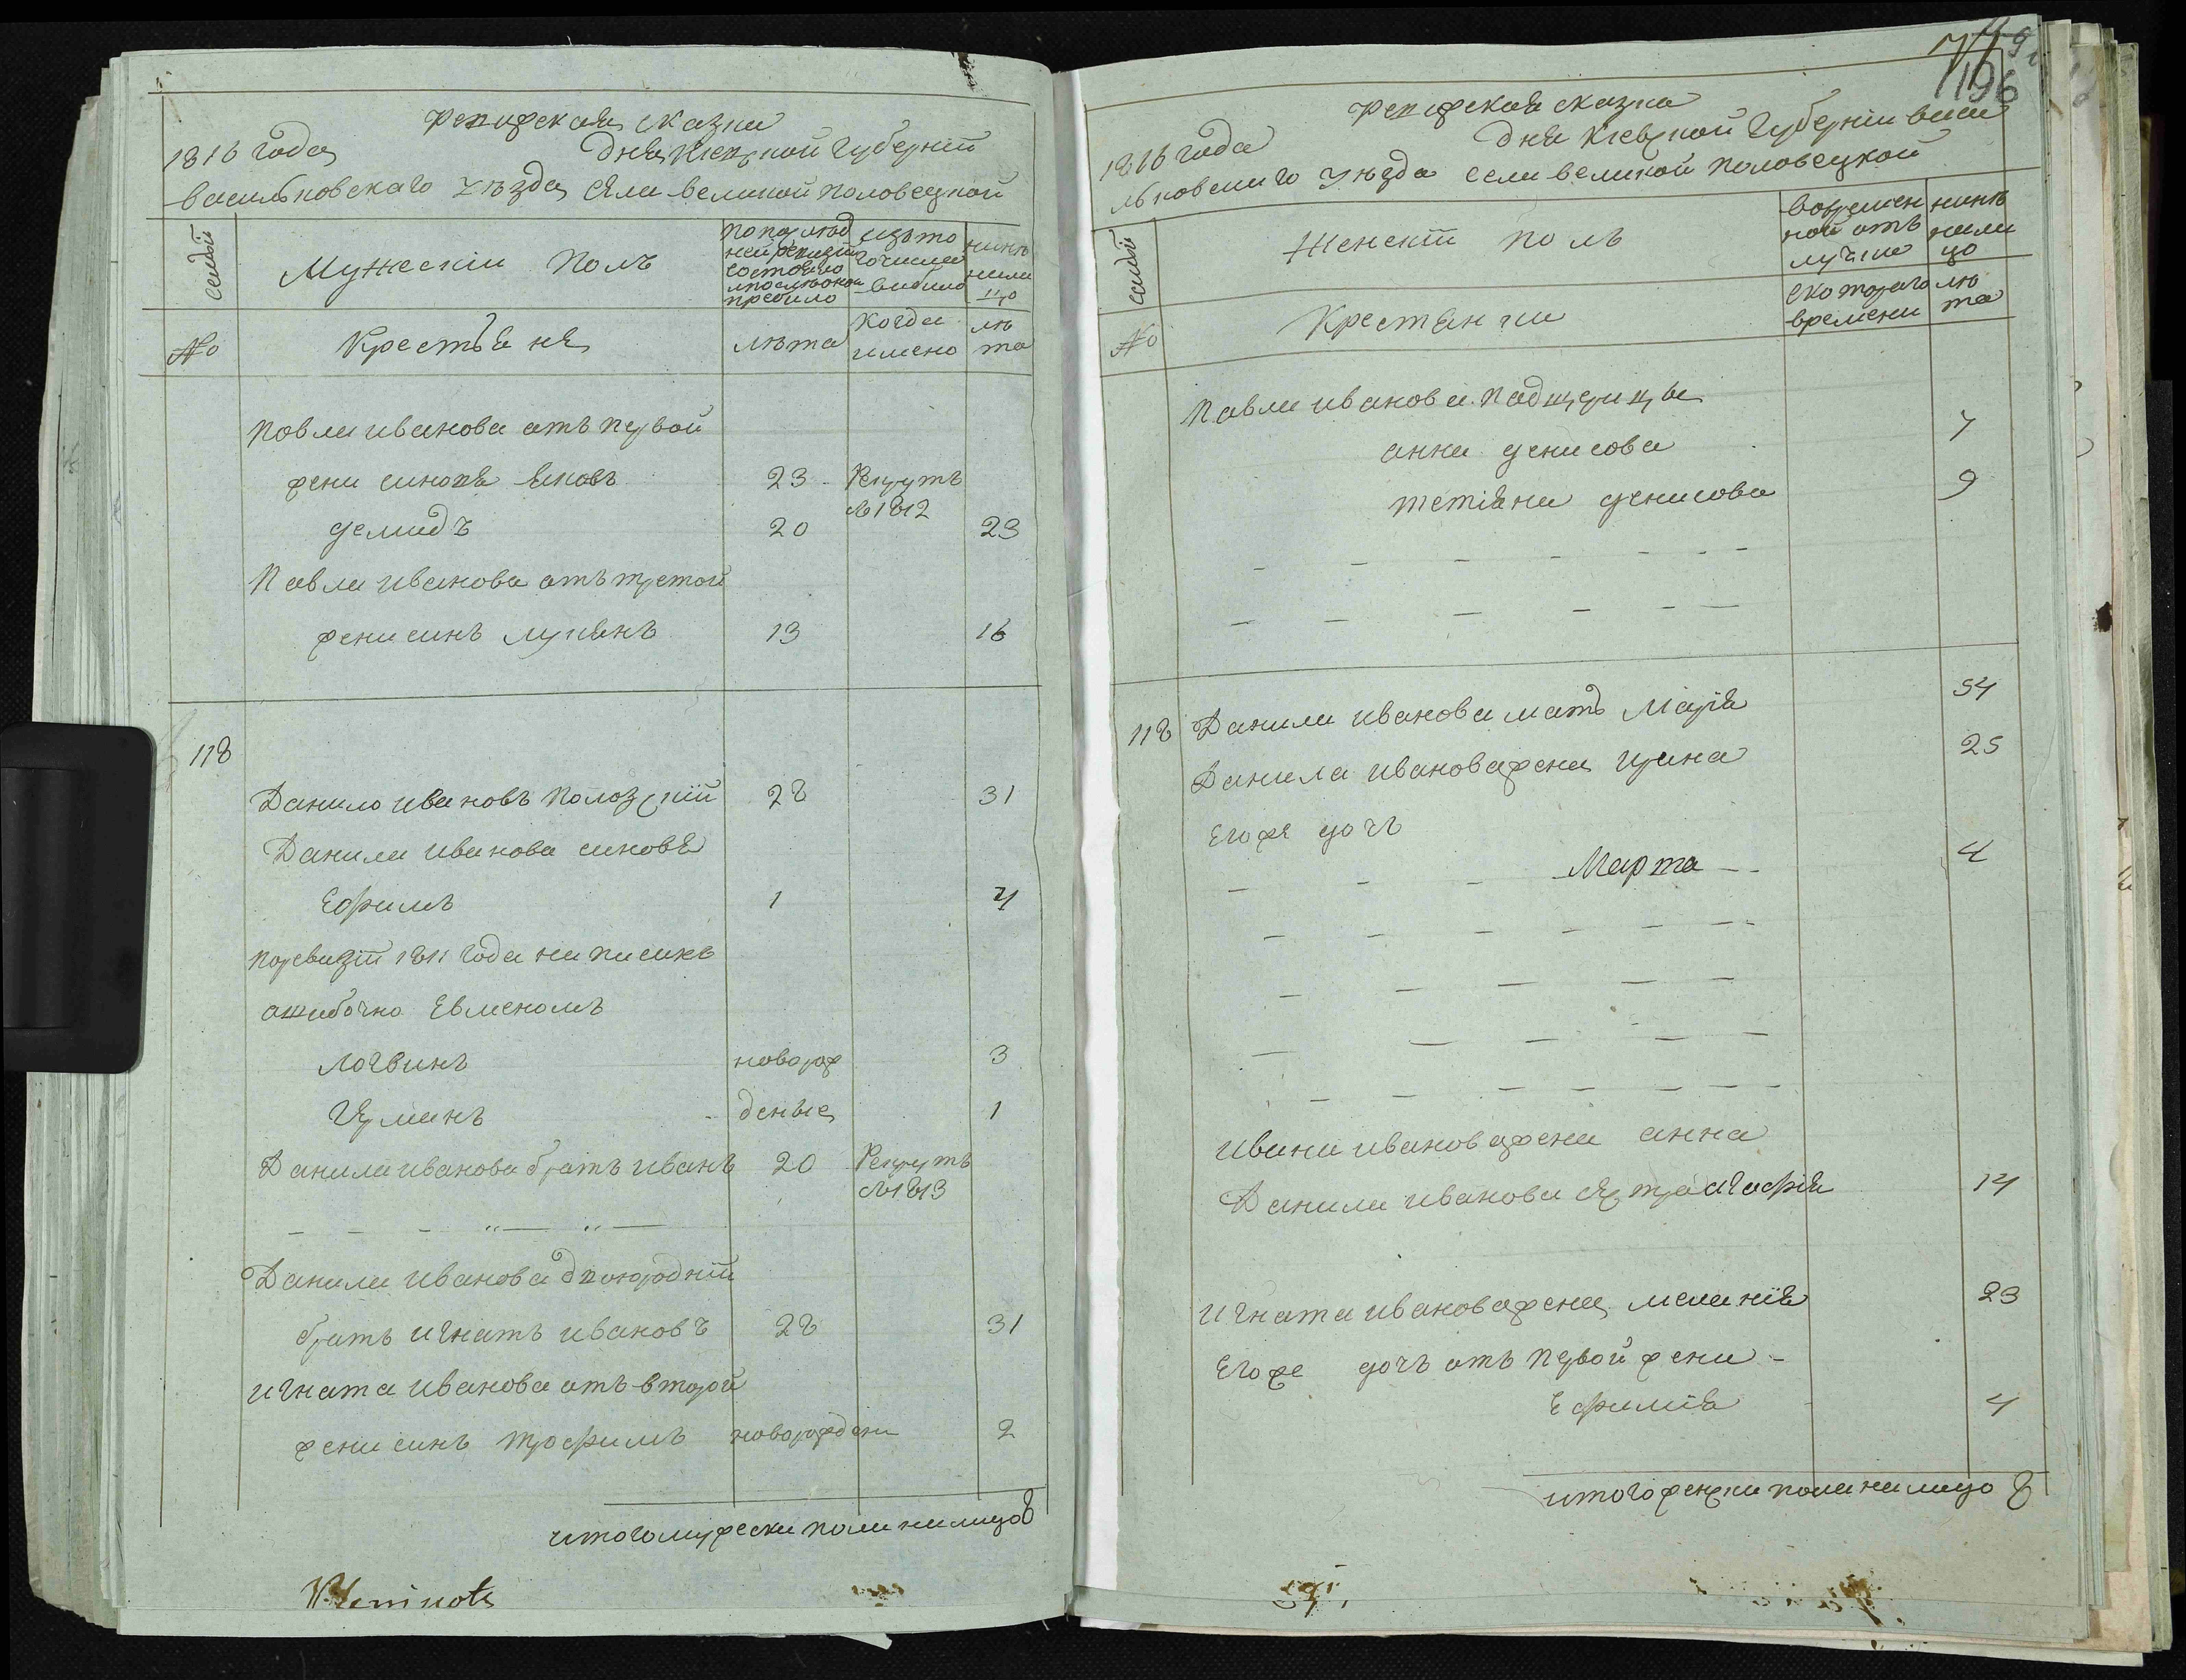 Ревизская сказка
1816 года дня Киевской Губерніи
Васильковскаго уезда села великой половецкой
семьи
Мужескій Полъ
По послед
ней ревизіи
состояло
и после оной
прибило
изъ то
го числа
вибило
нинѣ
нали
цо
№
Крестьяне
лѣта
когда
имено
лѣ
та
Повла иванова отъ первой
жени синовя Яковъ 23 Рекрутъ
№ 1812
демидъ 20 23
Павла иванова отъ третой
жени синъ лукянъ 13 16
118
Данило ивановъ Полозскій 28 31
Данила иванова синовя
Ефимъ 1 4
поревизіи 1811 года написанъ
ошибочно Евменомъ
логвинъ новорож 3
Ярминъ деные 1
Данила иванова братъ иванъ 20 Рекрутъ
№ 1813
Данила иванова двоюродній
братъ игнатъ ивановъ 28 31
игната иванова отъ второй
жени синъ трофимъ новорождени 2
итого мужеска пола налицо 8
196
Ревизская сказка
1816 года дня Киевской Губерніи васи
льковскаго уезда села великой половецкой
семьи
Женскій полъ
вовремен
ной отъ
лучке
нинѣ
нали
цо
№
Крестянки
скотораго
времени
лѣ
та
Павла иванова падщерицы
анна денисова 7
тетіяна денисова 9
118 Данила иванова мать Марія 54
Данила иванова жена ирина 25
Егоже дочъ
Марта 4
ивана иванова жена анна
Данила иванова сестра агафія 14
игната иванова жена меланія 23
Егоже дочъ отъ первой жени
Ефимія 4
итого женска пола налицо 8